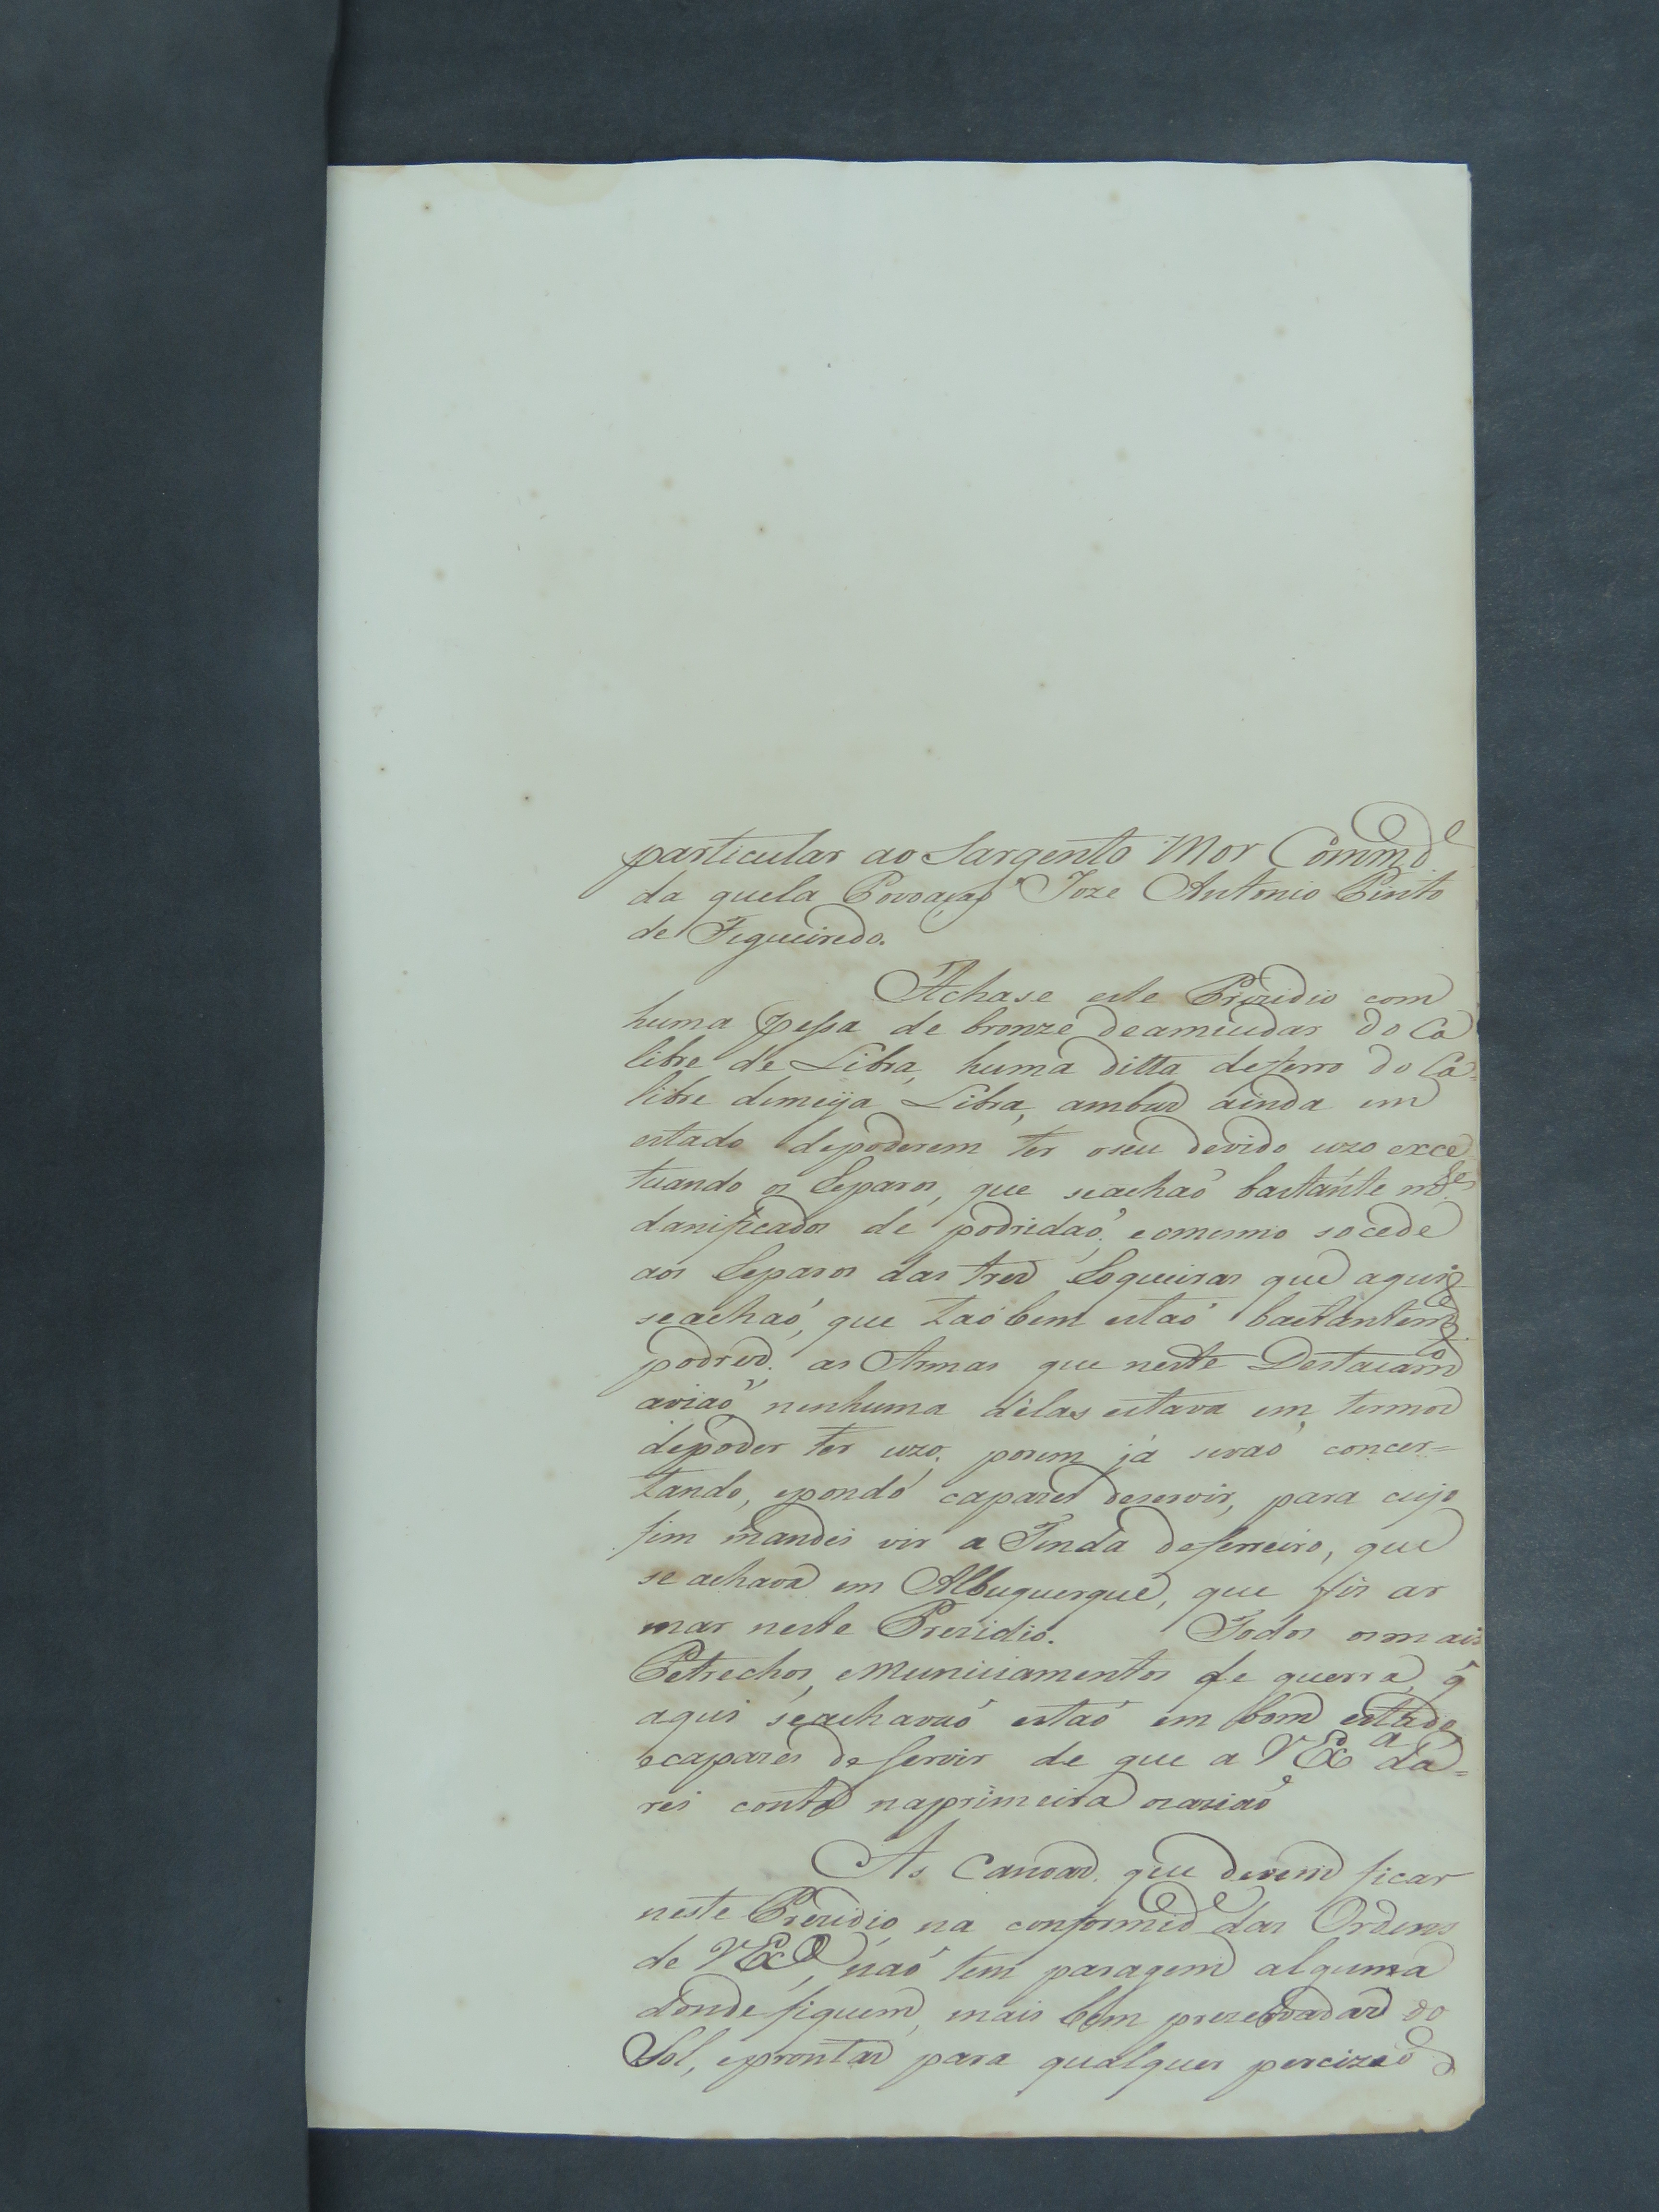 particular ao Sargento Mor Comm.de
da quela Povoaçaõ Joze Antonio Pinto
de Figueiredo.
Achase este Prezidio com
huma pessa de bronze deamiudar do Ca
libre de Libra, huma ditta deferro do Ca=
libre demeija Libra, ambas ainda em
estado depoderem ter oseu devido uzo exce
tuando os Reparos, que seachaõ bastánte m.tes
danificados de podridaõ, eomesmo socede
aos Reparos das tres Roqueiras que aqui
seachaõ, que taõbem estaõ bastantem.e
podres: as Armas que neste Destacam.to
aviaõ nenhuma délas estava em termos
depoder ter uzo; porem já sevaõ concer=
tando, epondó capazes deservir, para cujo
fim mandei vir a Tenda deferreiro, que
se achava em Albuquerque, que fis ar
mar neste Prezidio. Todos osmais
Petrechos, eMuniciamentos de guerra, q̃
aqui seachavaõ estaõ em bom estado,
ecapazes deservir de que a VEx.a da=
rei conta naprimeira ocaziaõ
As Canoas, que devem ficar
neste Prezidio, na conformid.e das Ordens
de VEx.a, naõ tem paragem alguma
donde fiquem, mais bem prezervadas do
Sol, eprontas para qualquer percizaõ